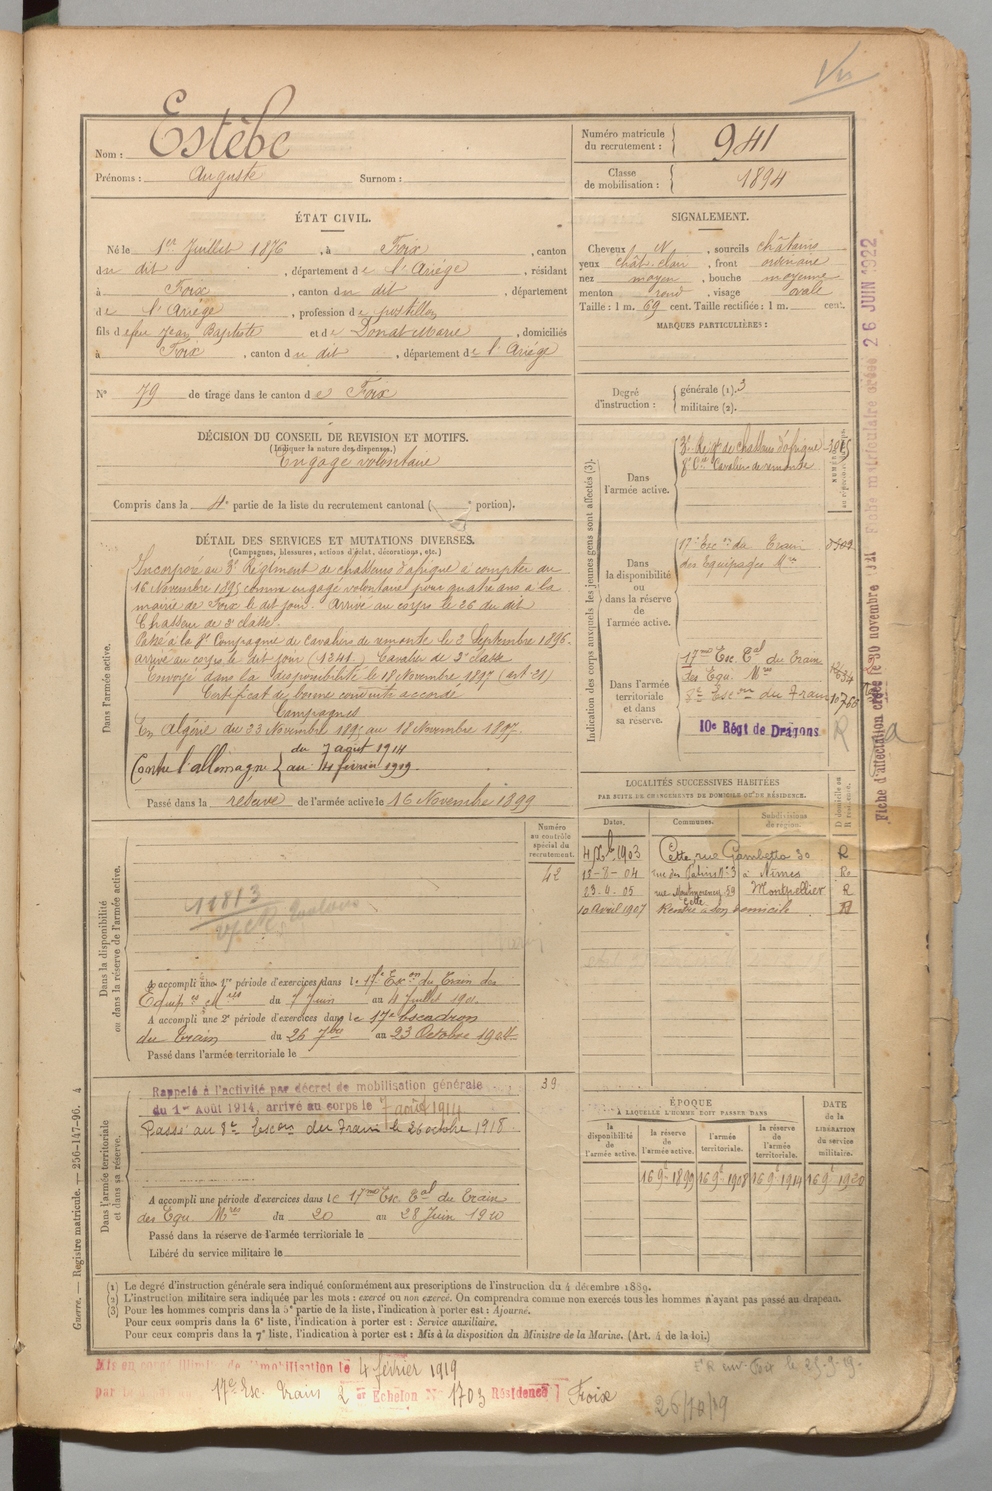 Nom : Estèbe
Prénoms : Auguste Surnom :
Numéro matricule du recrutement : 941
Classe de mobilisation : 1894
ÉTAT CIVIL.
Né le 1er Juillet 1876, à Foix, canton
du dit, département de l'Ariège, résidant
à Foix, canton du dit, département
de l'Ariège, profession de postillon
fils de feu Jean Baptiste et de Donat Marie, domiciliés
à Foix, canton du dit, département de l'Ariège
N° 79 de tirage dans le canton de Foix
SIGNALEMENT.
Cheveux N, sourcils châtains
yeux chât. clair, front ordinaire
nez moyen, bouche moyenne
menton rond, visage ovale
Taille : 1 m. 69 cent. Taille rectifiée : 1 m. cent.
MARQUES PARTICULIÈRES :
Degré d'instruction : générale (1). 3
militaire (2).
DÉCISION DU CONSEIL DE REVISION ET MOTIFS.
(Indiquer la nature des dispenses.)
Engagé volontaire
Compris dans la 4e partie de la liste du recrutement cantonal ( e portion).
DÉTAIL DES SERVICES ET MUTATIONS DIVERSES.
(Campagnes, blessures, actions d'éclat, décorations, etc.)
Dans l'armée active.
Incorporé au 3e Régiment de chasseurs d'afrique à compter du
16 Novembre 1895 comme engagé volontaire pour quatre ans à la
mairie de Foix le dit jour. Arrivé au corps le 26 du dit
Chasseur de 2e classe.
Passé à la 8e Compagnie de cavaliers de remonte le 2 Septembre 1896.
arrivé au corps le dit jour (1241) Cavalier de 2e classe
Envoyé dans la disponibilité le 18 Novembre 1897 (art 21)
Certificat de bonne conduite accordé
Campagnes
En Algérie du 23 Novembre 1895 au 18 Novembre 1897.
Contre l'allemagne du 7 août 1914
au 4 février 1919.
Passé dans la réserve de l'armée active le 16 Novembre 1899
Indication des corps auxquels les jeunes gens sont affectés (3).
Dans l'armée active.
3e Régt de chasseurs d'afrique
8e Cie Cavaliers de remonte
Dans la disponibilité ou dans la réserve de l'armée active.
17e Escon du Train
des Equipages Mres
Dans l'armée territoriale et dans sa réserve.
17me Esc. Tal du Train
des Equ. Mres
8e Escon du Train
10e Régt de Dragons
R
Fiche matriculaire créée 26 JUIN 1922
Fiche d'affectation créée le 30 novembre
LOCALITÉS SUCCESSIVES HABITÉES
PAR SUITE DE CHANGEMENTS DE DOMICILE OU DE RÉSIDENCE.
Dates. Communes. Subdivisions de région. D domicile ou R résidence.
4 Xbre 1903 Cette, rue Gambetta 30 R
à Nîmes Re
23.9.05 rue Montmorency 29 Cette Montpellier R
10 Avril 1907 Rendu à son domicile
Numéro au contrôle spécial du recrutement.
42
Dans la disponibilité ou dans la réserve de l'armée active.
11813
A accompli une 1re période d'exercices dans le 17e Escon du Train des
Equip es Mres du 7 Juin au 4 Juillet 1901.
A accompli une 2e période d'exercices dans le 17e Escadron
du Train du 26 7bre au 23 Octobre 1904
Passé dans l'armée territoriale le
39
Dans l'armée territoriale et dans sa réserve.
Rappelé à l'activité par décret de mobilisation générale
du 1er Août 1914, arrivé au corps le 7 août 1914
Passé au 8e Escon du Train le 26 octobre 1918
A accompli une période d'exercices dans le 17me Esc. Tal du Train
des Equ. Mres du 20 au 28 Juin 1910
Passé dans la réserve de l'armée territoriale le
Libéré du service militaire le
ÉPOQUE
À LAQUELLE L'HOMME DOIT PASSER DANS
la disponibilité de l'armée active. la réserve de l'armée active. l'armée territoriale. la réserve de l'armée territoriale. DATE de la LIBÉRATION du service militaire.
16 9e 1899 16 9e 1908 16 9e 1914 16 9e 1920
(1) Le degré d'instruction générale sera indiqué conformément aux prescriptions de l'instruction du 4 décembre 1889.
(2) L'instruction militaire sera indiquée par les mots : exercé ou non exercé. On comprendra comme non exercés tous les hommes n'ayant pas passé au drapeau.
(3) Pour les hommes compris dans la 5e partie de la liste, l'indication à porter est : Ajourné.
Pour ceux compris dans la 6e liste, l'indication à porter est : Service auxiliaire.
Pour ceux compris dans la 7e liste, l'indication à porter est : Mis à la disposition du Ministre de la Marine. (Art. 4 de la loi.)
Guerre. — Registre matricule. — 256-147-96. 4
Mis en congé illimité de démobilisation le 4 février 1919
17e Esc. Train 2 er Echelon No 1703 Résidence Foix
26/10/19